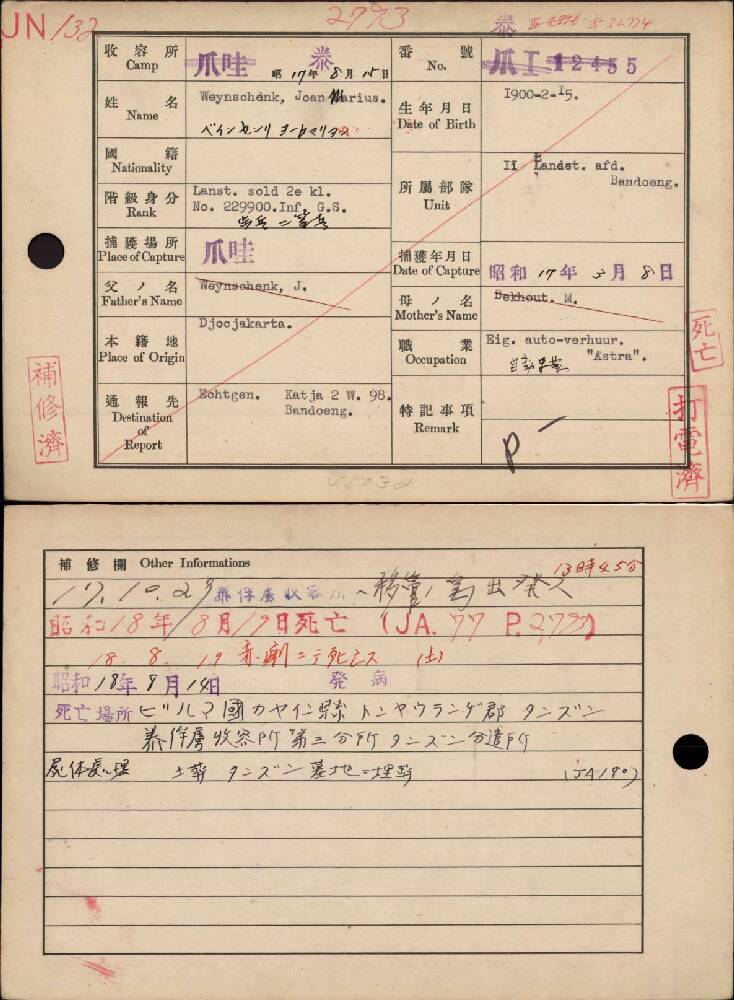 JN/132
2793
泰
収容所 Camp
爪哇 泰
昭 17年 8月 15日
番號 No.
爪I 12455
姓名 Name
Weynschenk, Jean Marius.
生年月日 Date of Birth
1900-2-15.
國籍 Nationality
階級身分 Rank
Lanst. sold 2e kl.
No. 229900.Inf. G.S.
歩兵二等兵
所屬部隊 Unit
II Landst. afd.
Bandoeng.
捕獲場所 Place of Capture
爪哇
捕獲年月日 Date of Capture
昭和 17年 3月 8日
父ノ名 Father's Name
Weynschenk, J.
母ノ名 Mother's Name
Bekhout. M.
本籍地 Place of Origin
Djocjakarta.
職業 Occupation
Eig. auto-verhuur.
"Astra".
通報先 Destination of Report
Echtgen. Katja 2 W. 98.
Bandoeng.
特記事項 Remark
P -
補修濟
死亡
打電濟
45032
補修欄 Other Informations
13時45分
17.10.29 泰俘虜収容所ヘ移管ノ為出発ス
昭和18年8月19日死亡 (JA. 77 P. 2793)
18. 8. 19 赤痢ニテ死亡ス
昭和18年8月14日 発病
死亡場所 ビルマ國カヤイン縣 トンヤウランゲ郡 タンズン
泰俘虜收容所第三分所タンズン分遣所
屍体処理 土葬 タンズン墓地ニ埋葬 (JA190)